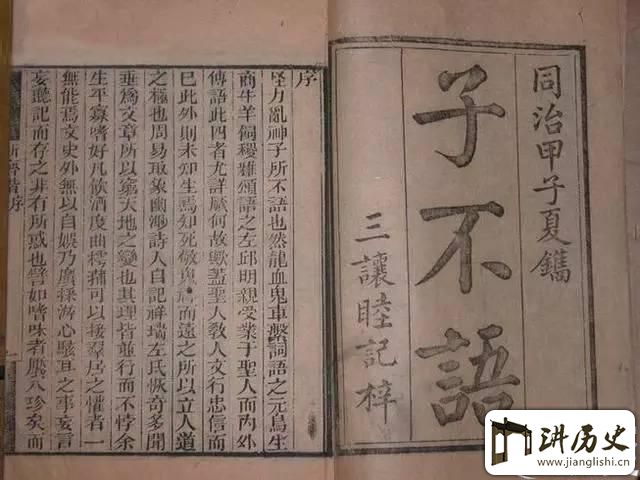 同治甲子夏鐫
子不語
三讓睦記梓
序
怪力亂神子所不語也然龍血鬼車繫詞語之元鳥生
商牛羊飼稷雅頌語之左邱明親受業于聖人而內外
傳語此四者尤詳厥何故歟蓋聖人教人文行忠信而
已此外則未知生焉知死敬鬼而遠之所以立人道
之極也周易取象幽渺詩人自記祥瑞左氏恢奇多聞
垂為文章所以窮天地之變也其理皆並行而不悖余
生平寡嗜好凡飲酒度曲樗蒱可以接羣居之懽者一
無能焉文史外無以自娛乃廣採游心駭耳之事妄言
妄聽記而存之非有所惑也譬如嗜味者饜八珍矣而
新齊諧序
一
讲历史
www.jianglishi.cn